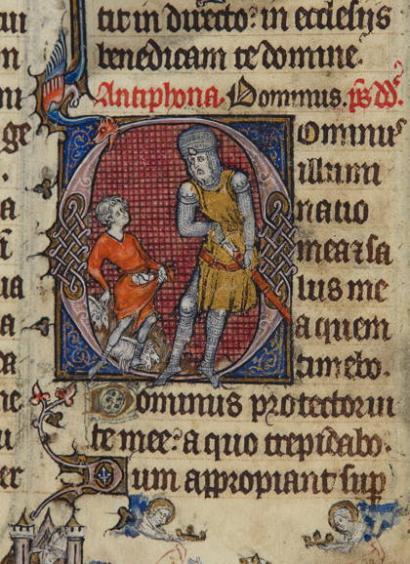 tum in directo: in ecclesiis
benedicam te domine.
Antiphona. Dominus. ps dd.
Dominus
illumi
natio
mea et sa
lus me
a quem
timebo.
Dominus protector ui
te mee: a quo trepidabo.
Dum appropiant sup